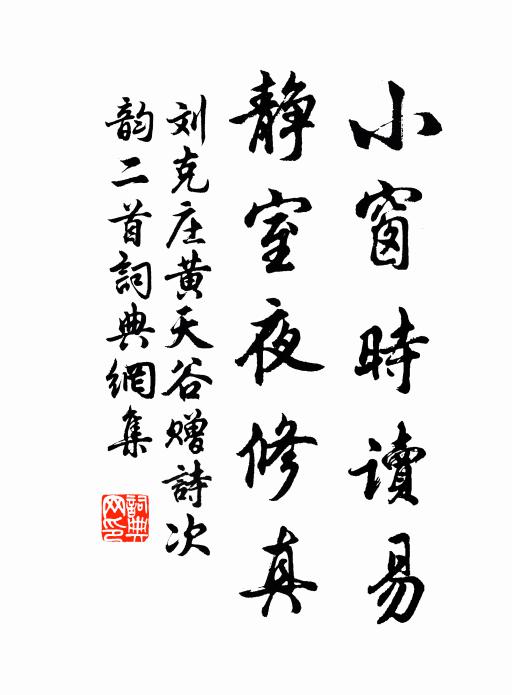 小窗時讀易
静室夜修真
刘克庄黄天谷赠詩次
韵二首詞典網集
詞典
网印